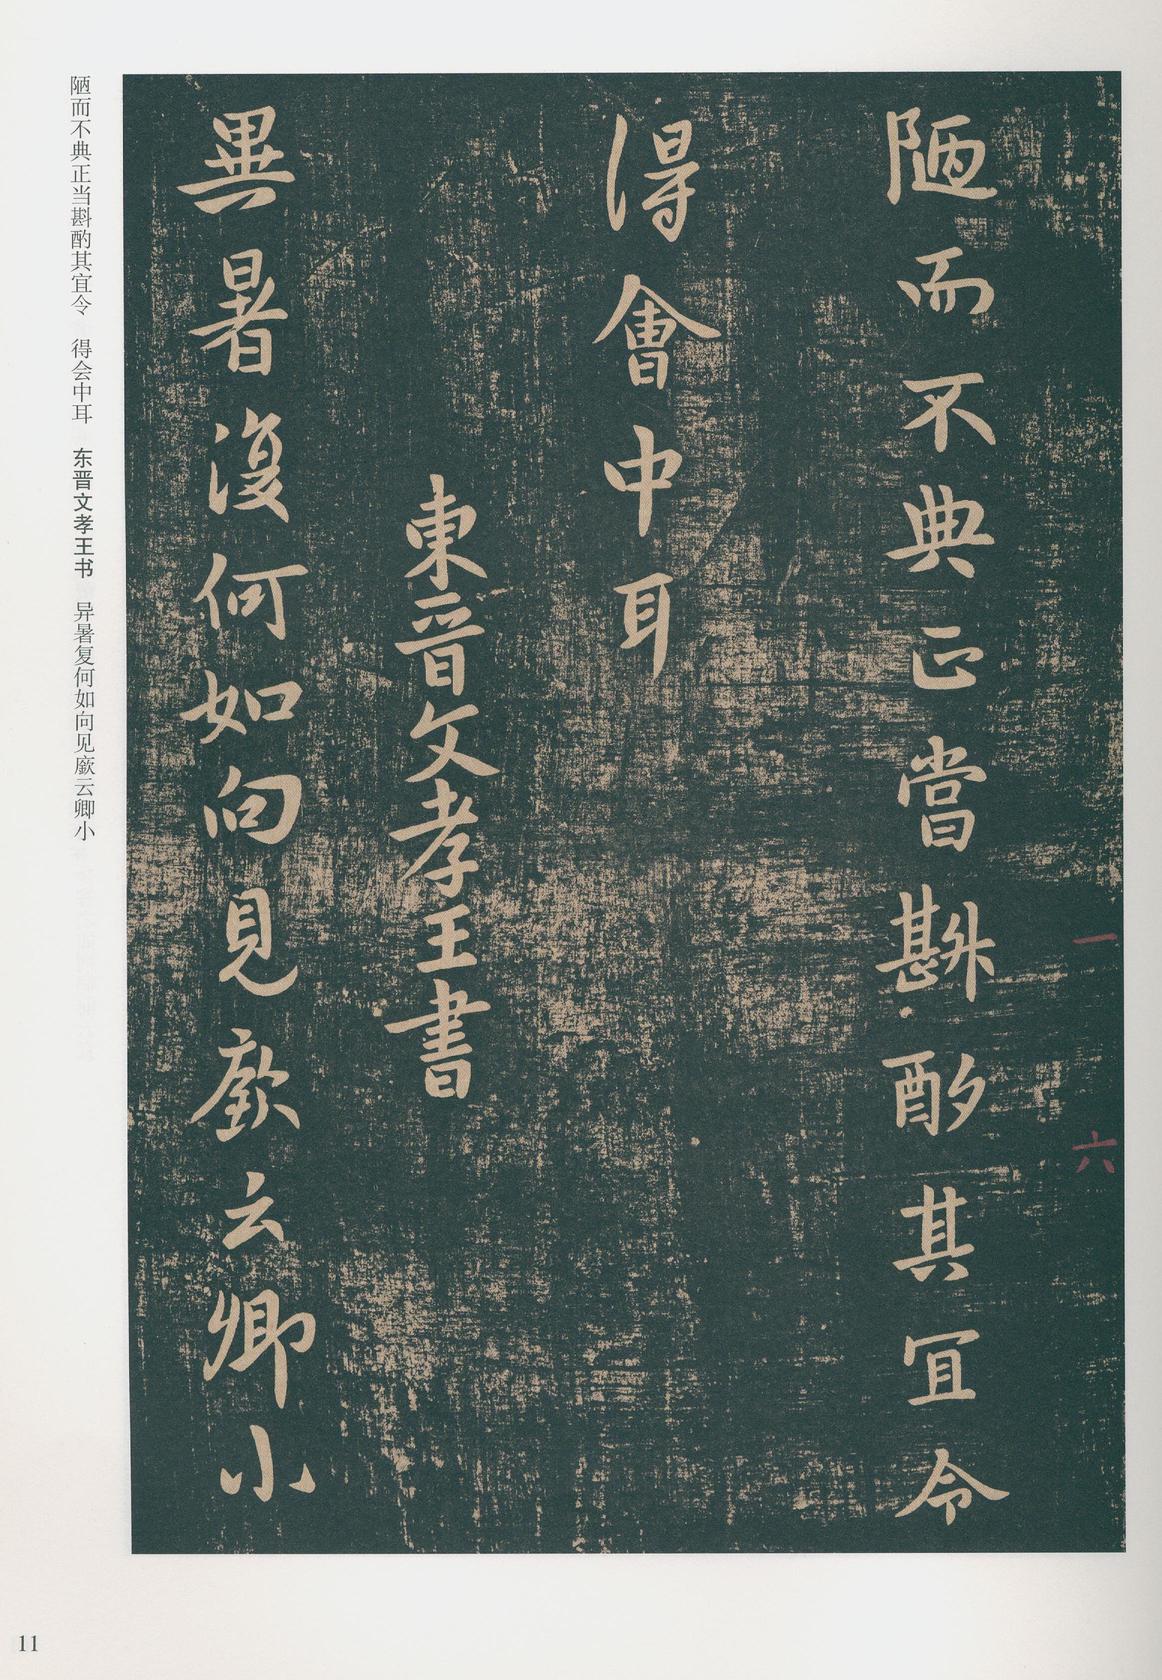 陋而不典正當斟酌其宜令
得會中耳
東晉文孝王書
異暑復何如向見廞云卿小
一六
陋而不典正当斟酌其宜令　得会中耳　东晋文孝王书　异暑复何如向见廞云卿小
11